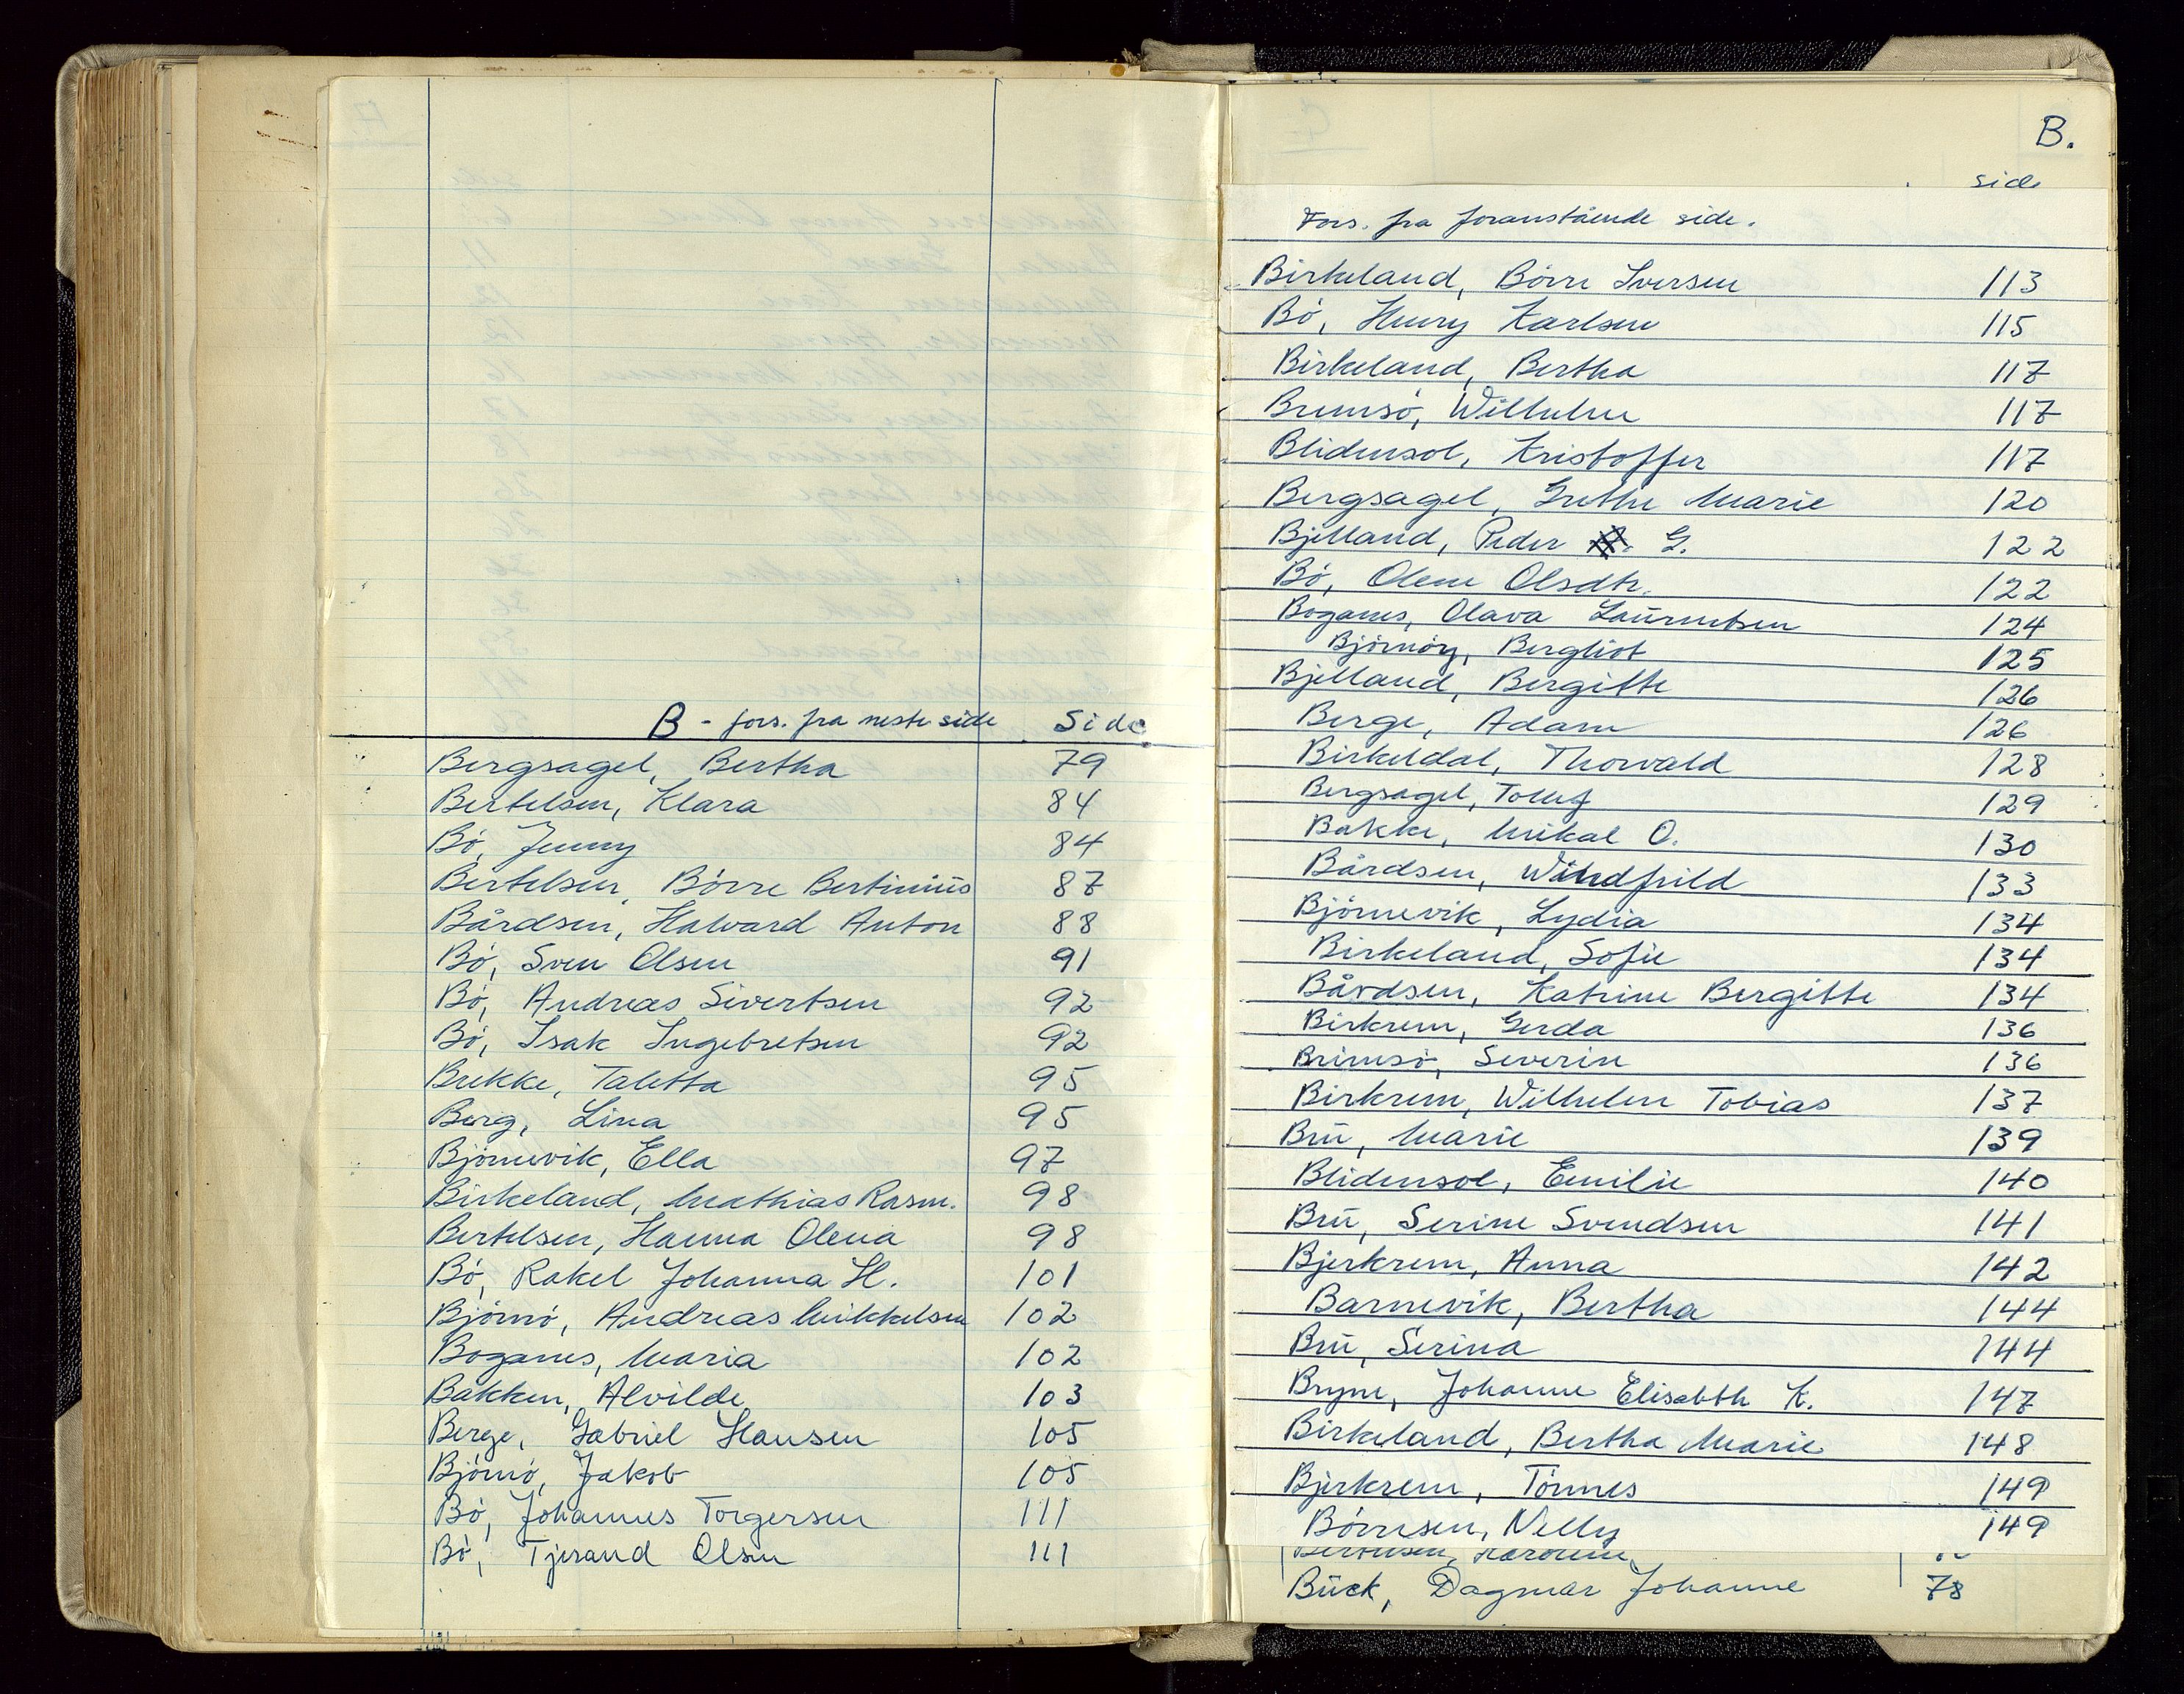 B - fors. fra neste side Side
Bergsagel, Bertha 79
Bertelsen, Klara 84
Bö, Jenny 84
Bertelsen, Börre Bertinius 87
Bårdsen, Halvard Anton 88
Bö, Sven Olsen 91
Bö, Andreas Sivertsen 92
Bö, Isak Ingebretsen 92
Brekke, Taletta 95
Berg, Lina 95
Björnevik, Ella 97
Birkeland, Mathias Rasm. 98
Bertelsen, Hanna Olena 98
Bö, Rakel Johanna H. 101
Björnö, Andreas Mikkelsen 102
Boganes, Maria 102
Bakken, Alvilde 103
Berge, Gabriel Hansen 105
Björnö, Jakob 105
Bö, Johannes Torgersen 111
Bö, Tjerand Olsen 111
B.
side
Fors. fra foranstående side.
Birkeland, Börre Iversen 113
Bö, Henry Karlsen 115
Birkeland, Bertha 117
Brimsö, Wilhelm 117
Blidensol, Kristoffer 117
Bergsagel, Grethe Marie 120
Bjelland, Peder G. 122
Bö, Olene Olsdtr. 122
Boganes, Olava Laurentsen 124
Björnöy, Bergliot 125
Bjelland, Bergitte 126
Berge, Adam 126
Birkeldal, Thorvald 128
Bergsagel, Tollef 129
Bakke, Mikal O. 130
Bårdsen, Windfrild 133
Björnevik, Lydia 134
Birkeland, Sofie 134
Bårdsen, Katrine Bergitte 134
Birkrem, Gerda 136
Brimsö, Severin 136
Birkrem, Wilhelm Tobias 137
Brü, Marie 139
Blidensol, Emilie 140
Brü, Serine Svendsen 141
Bjerkrem, Anna 142
Barnevik, Bertha 144
Brü, Serina 144
Bryne, Johanne Elisabth K. 147
Birkeland, Bertha Marie 148
Bjerkrem, Tönnes 149
Börresen, Nelly 149
Bück, Dagmar Johanne 78